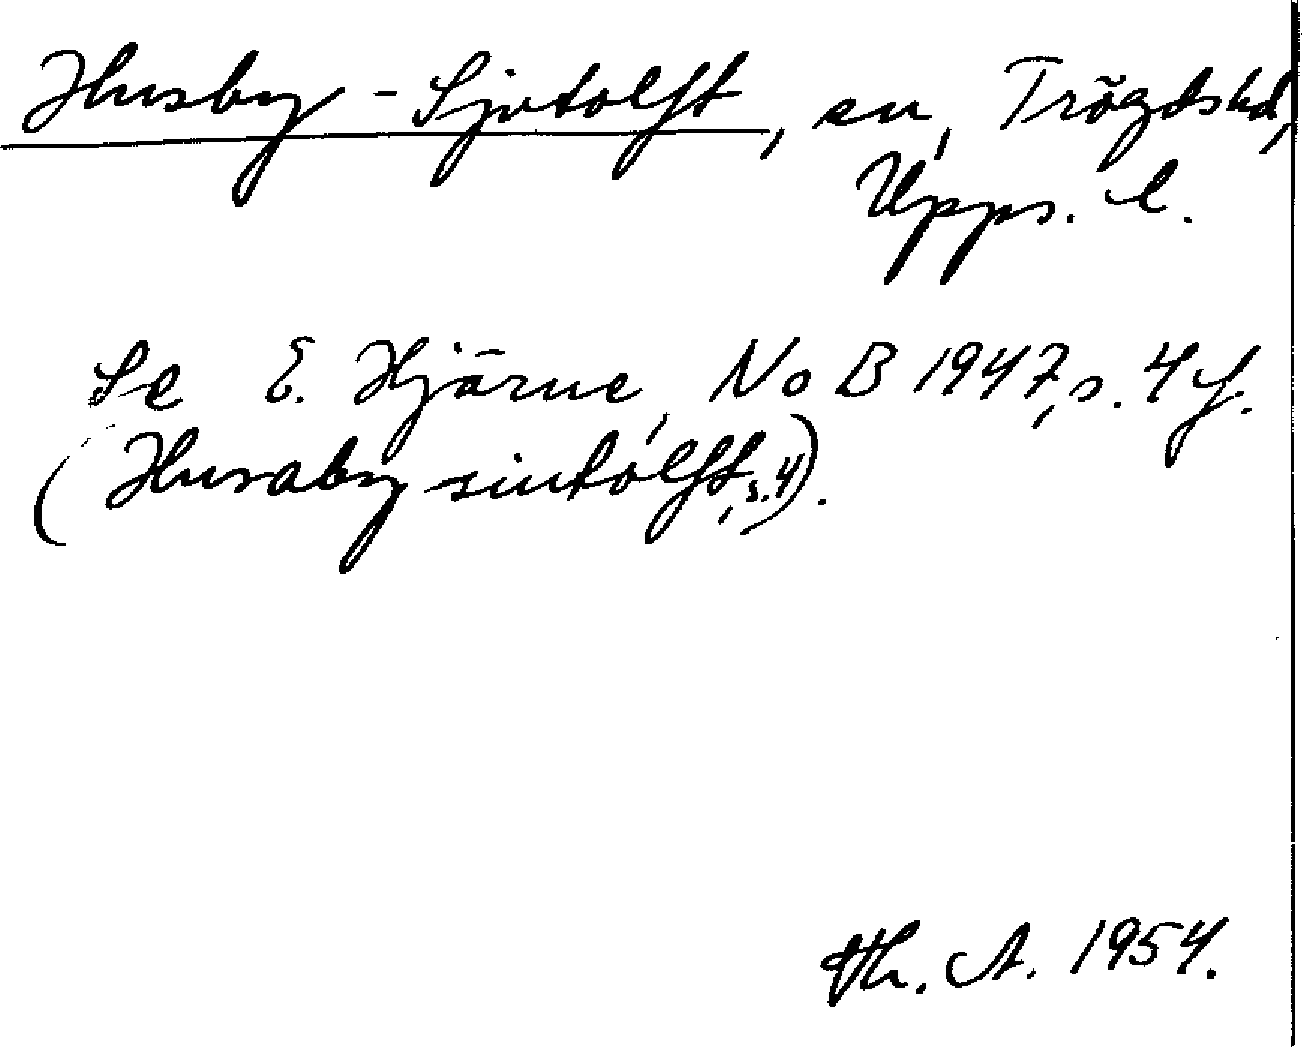 Husby-Sjutolft, sn, Trögds hd,
Upps. l.
Se E. Hjärne, NoB 1947, s. 4 f.
(Husabysiutolfft, s. 4).
Th. A. 1954.